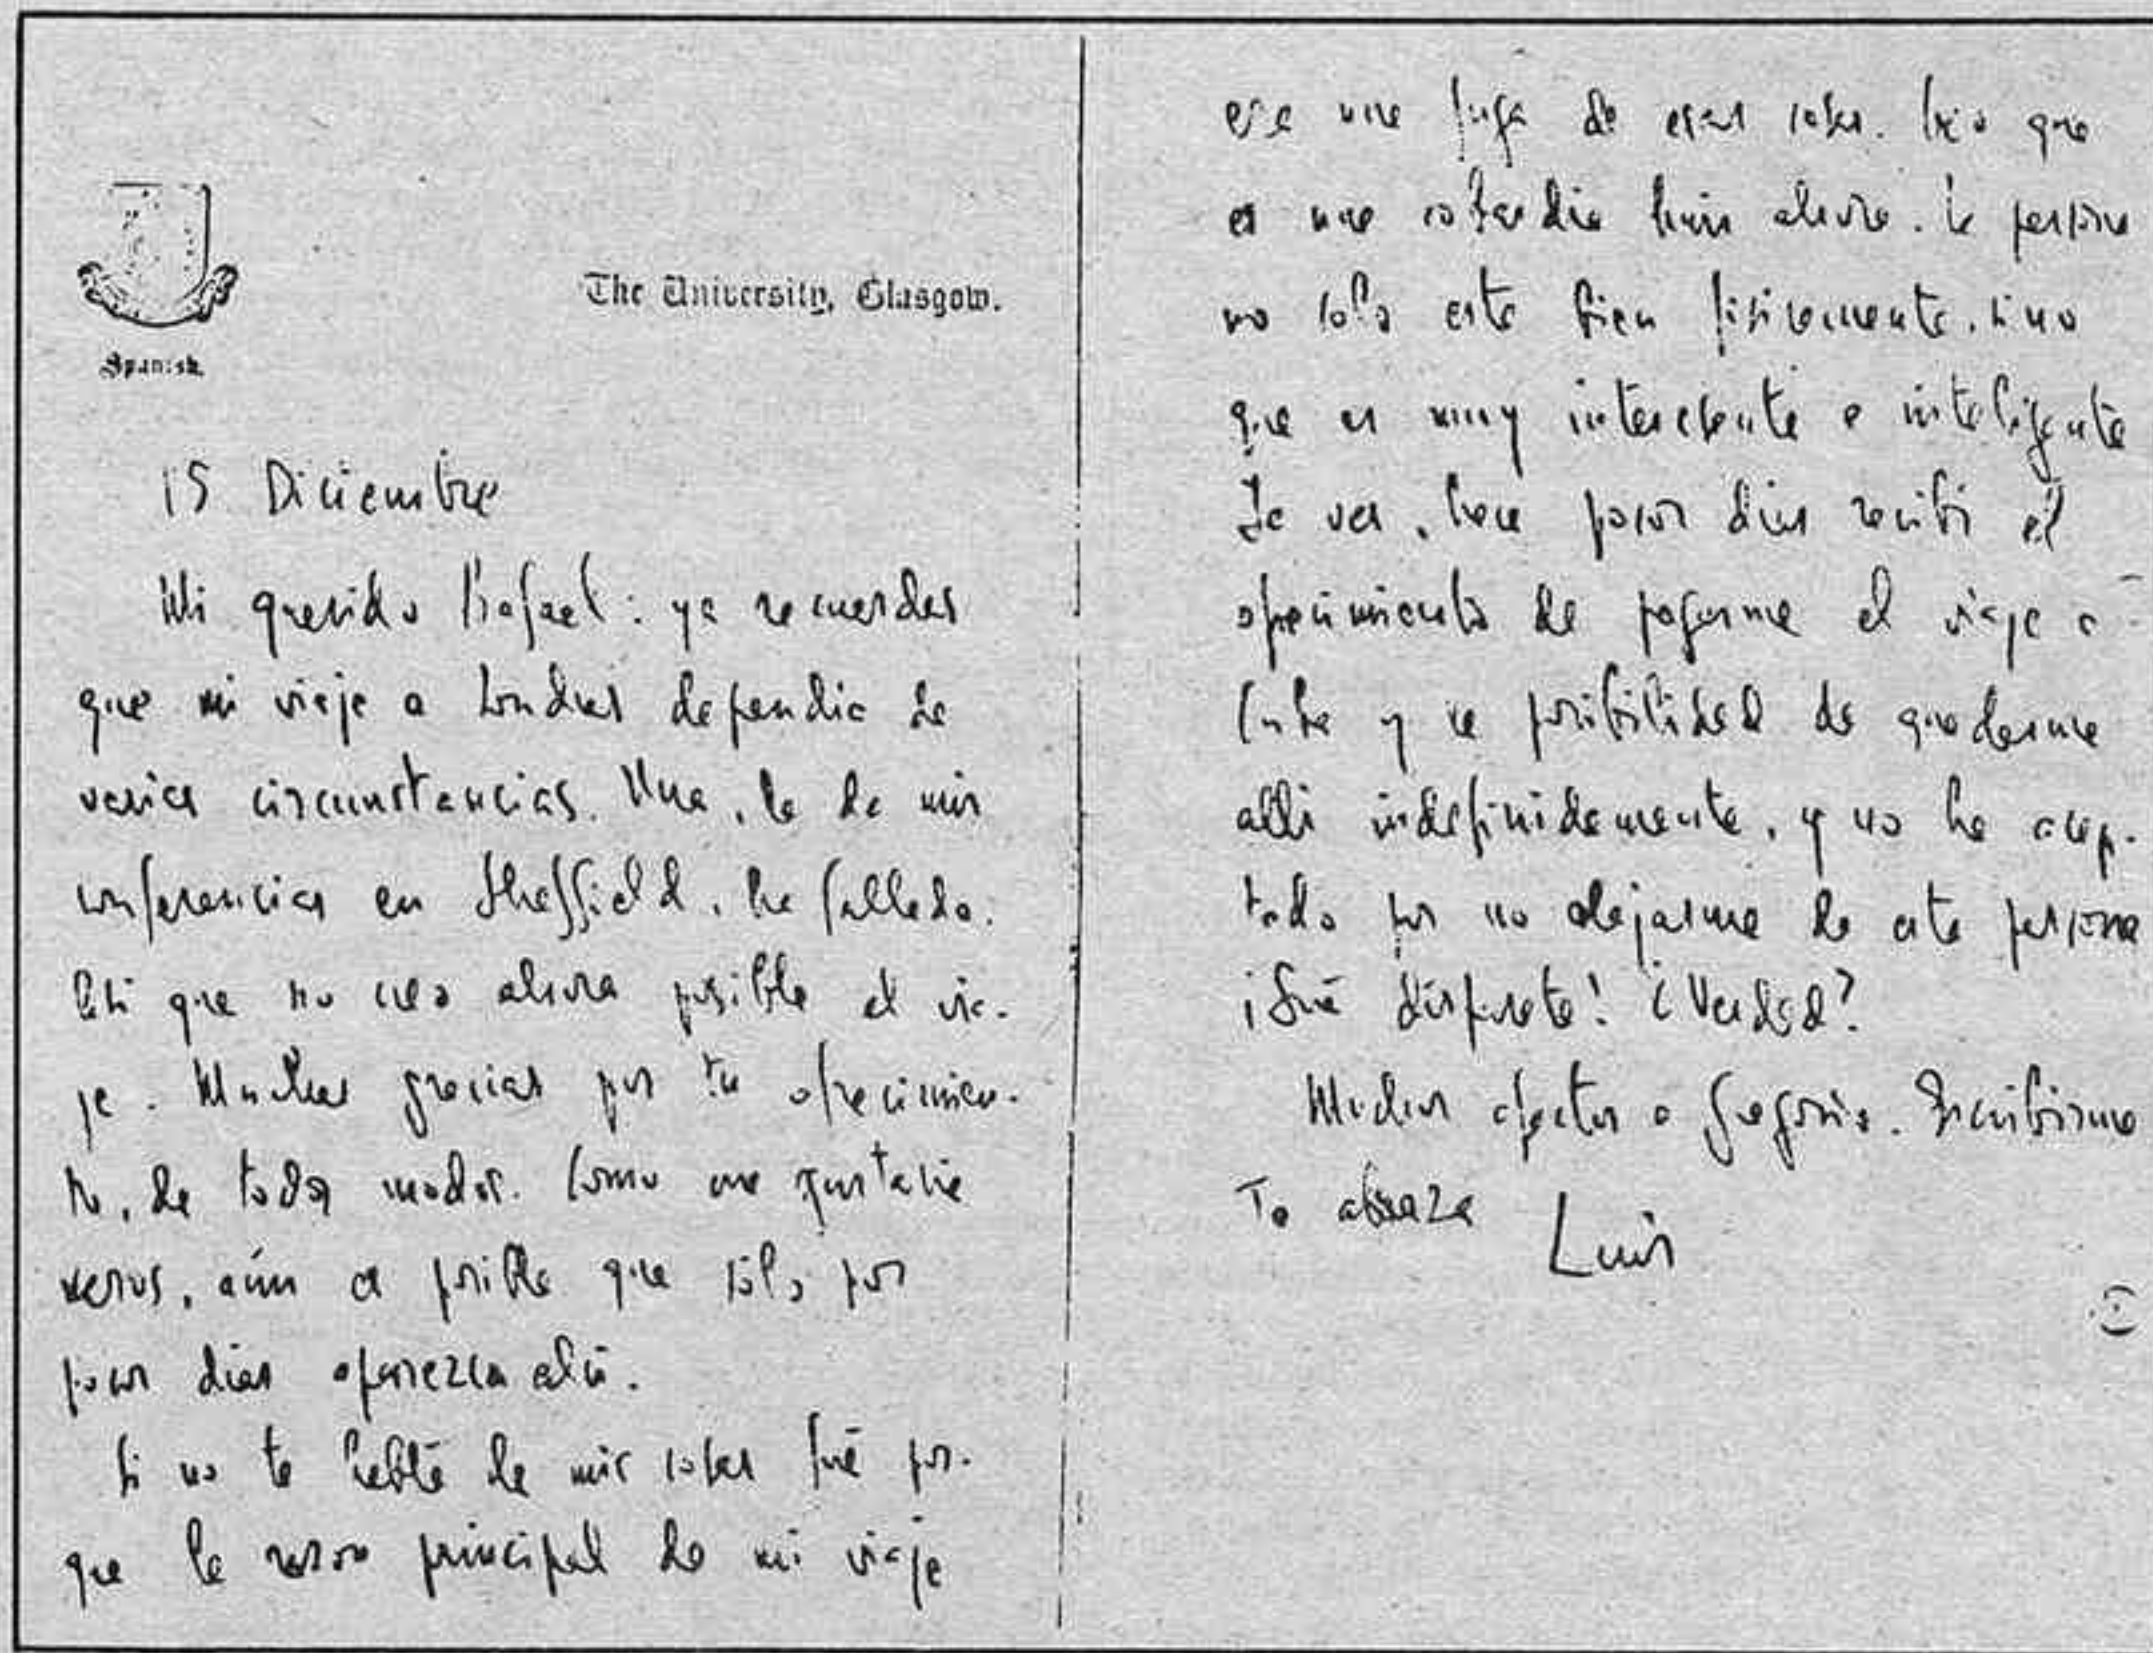 The University, Glasgow.
Spanish.
15 Diciembre
Mi querido Rafael: ya recuerdas
que mi viaje a Londres dependia de
varias circunstancias. Una, la de mis
conferencias en Sheffield, ha fallado.
Asi que no creo ahora posible el via-
je. Muchas gracias por tu ofrecimien-
to, de todos modos. Como me gustaria
veros, aún es posible que sólo por
pocos dias aparezca ahi.
Si no te hablé de mis cosas fué por-
que la razon principal de mi viaje
era una fuga de esas cosas. Creo que
es una cobardia huir ahora. La persona
no solo esta bien fisicamente, sino
que es muy interesante e inteligente
Ya ves, hace pocos dias recibi el
ofrecimiento de pagarme el viaje a
Cuba y la posibilidad de quedarme
alli indefinidamente, y no he acep-
tado por no alejarme de esta persona
¡Qué disparate! ¿Verdad?
Muchos afectos a Gregorio. Escribirme
Te abraza Luis